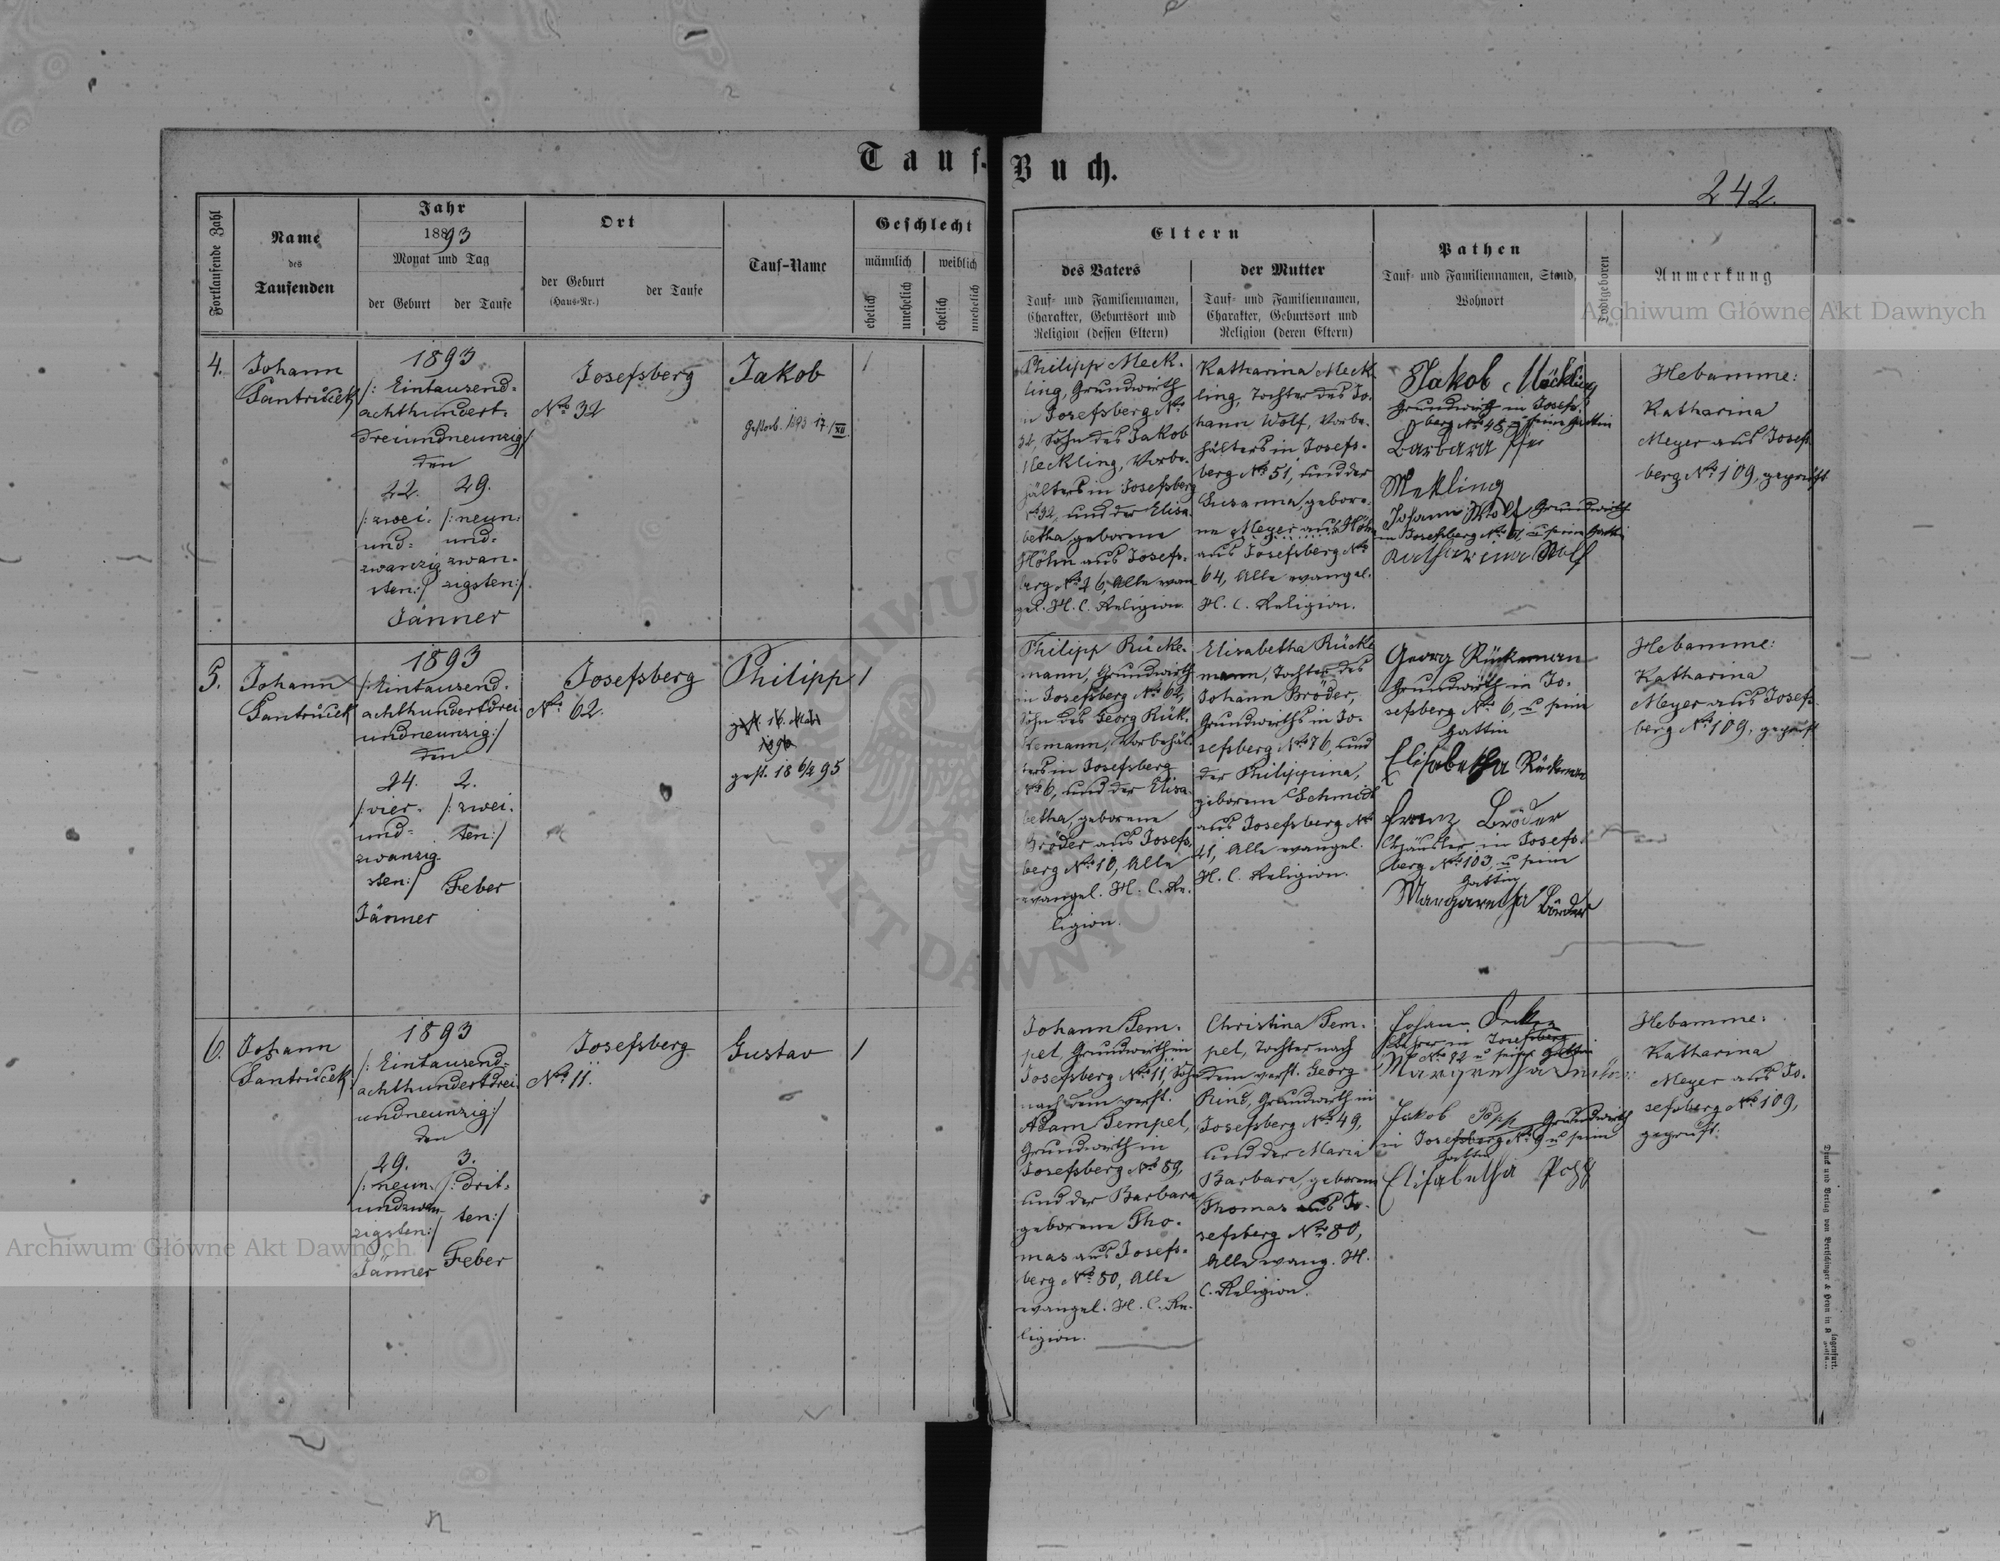 Tauf-Buch.
242.
Fortlaufende Zahl
Name
des
Taufenden
Jahr
1893
Monat und Tag
der Geburt
der Taufe
Ort
der Geburt
(Haus-Nr.)
der Taufe
Tauf-Name
Geschlecht
männlich
weiblich
ehelich
unehelich
ehelich
unehelich
Eltern
des Vaters
Tauf- und Familiennamen,
Charakter, Geburtsort und
Religion (dessen Eltern)
der Mutter
Tauf- und Familiennamen,
Charakter, Geburtsort und
Religion (deren Eltern)
Pathen
Tauf- und Familiennamen, Stand,
Wohnort
Todtgeboren
Anmerkung
4.
Johann
Santrůček
1893
/: Eintausend-
achthundert-
dreiundneunzig/
den
22.
/: zwei-
und-
zwanzig
sten:/
29.
/: neun-
und-
zwan-
zigsten:/
Jänner
Josefsberg
No 32
Jakob
Gestorb. 1893 17./XII.
1
Philipp Meck-
ling, Grundwirth
in Josefsberg No
32, Sohn des Jakob
Meckling, Vorbe-
hälters in Josefsberg
No 32, und der Elisa
betha, geborene
Höhn aus Josefs-
berg No 26, Alle evan
gel. H. C. Religion.
Katharina Meck
ling, Tochter des Jo-
hann Wolf, Vorbe-
hälters in Josefs-
berg No 51, und der
Susanna, gebore-
ne Meyer
aus Josefsberg No
64, Alle evangel.
H. C. Religion.
Jakob Mäckling
Grundwirth in Josefs-
berg No 48, u seine Gattin
Barbara
Mekling
Johann Wolf Grundwirth
in Josefsberg No 51, u seine Gattin
Katharina Wolf
Hebamme:
Katharina
Meyer aus Josefs
berg No 109, geprüft
5.
Johann
Santrůček
1893
/: Eintausend-
achthundertdrei-
undneunzig:/
den
24.
/: vier-
und-
zwanzig
sten:/
Jänner
2.
/: zwei-
ten:/
Feber
Josefsberg
No 62.
Philipp
gest. 18 6/2 95
1
Philipp Rücke-
mann, Grundwirth
in Josefsberg No 62,
Sohn des Georg Rük-
kemann, Vorbehäl-
ters in Josefsberg
No 6, und der Elisa-
betha, geborene
Bröder aus Josefs-
berg No 10, Alle
evangel. H. C. Re-
ligion.
Elisabetha Rücke
mann, Tochter des
Johann Bröder,
Grundwirths in Jo-
sefsberg No 76, und
der Philippina,
geborene Schmidt
aus Josefsberg No
41, Alle evangel.
H. C. Religion.
Georg Rückeman
Grundwirth in Jo-
sefsberg No 6, u seine
Gattin
Elisabetha Rückeman
Franz Bröder
Häusler in Josefs-
berg No 103, u seine
Gattin
Margaretha Bröder
Hebamme:
Katharina
Meyer aus Josefs-
berg No 109, geprüft
6.
Johann
Santrůček
1893
/: Eintausend-
achthundertdrei-
undneunzig:/
den
29.
/: neun-
undzwan-
zigsten:/
Jänner
3.
/: drit-
ten:/
Feber
Josefsberg
No 11.
Gustav
1
Johann Tem-
pel, Grundwirth in
Josefsberg No 11, Sohn
nach dem verst.
Adam Tempel,
Grundwirth in
Josefsberg No 59,
und der Barbara
geborene Tho-
mas aus Josefs-
berg No 80, Alle
evangel. H. C. Re-
ligion.
Christina Tem-
pel, Tochter nach
dem verst. Georg
Rind, Grundwirth in
Josefsberg No 49,
und der Maria
Barbara, geborene
Thomas aus Jo-
sefsberg No 80,
Alle evang. H.
C. Religion.
Johann
Lehrer in Josefsberg
No 82 u seine Gattin
Margaretha
Jakob Popp Grundwirth
in Josefsberg No 9 u seine
Gattin
Elisabetha Popp
Hebamme:
Katharina
Meyer aus Jo-
sefsberg No 109,
geprüft.
Archiwum Główne Akt Dawnych
Archiwum Główne Akt Dawnych
ARCHIWUM GŁÓWNE AKT DAWNYCH